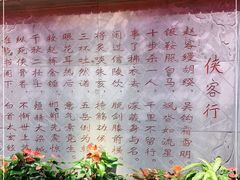 侠客行
赵客缦胡缨 吴钩霜雪明
银鞍照白马 飒沓如流星
十步杀一人 千里不留行
事了拂衣去 深藏身与名
闲过信陵饮 脱剑膝前横
将炙啖朱亥 持觞劝侯嬴
三杯吐然诺 五岳倒为轻
眼花耳热后 意气素霓生
救赵挥金锤 邯郸先震惊
千秋二壮士 烜赫大梁城
纵死侠骨香 不惭世上英
谁能书阁下 白首太玄经